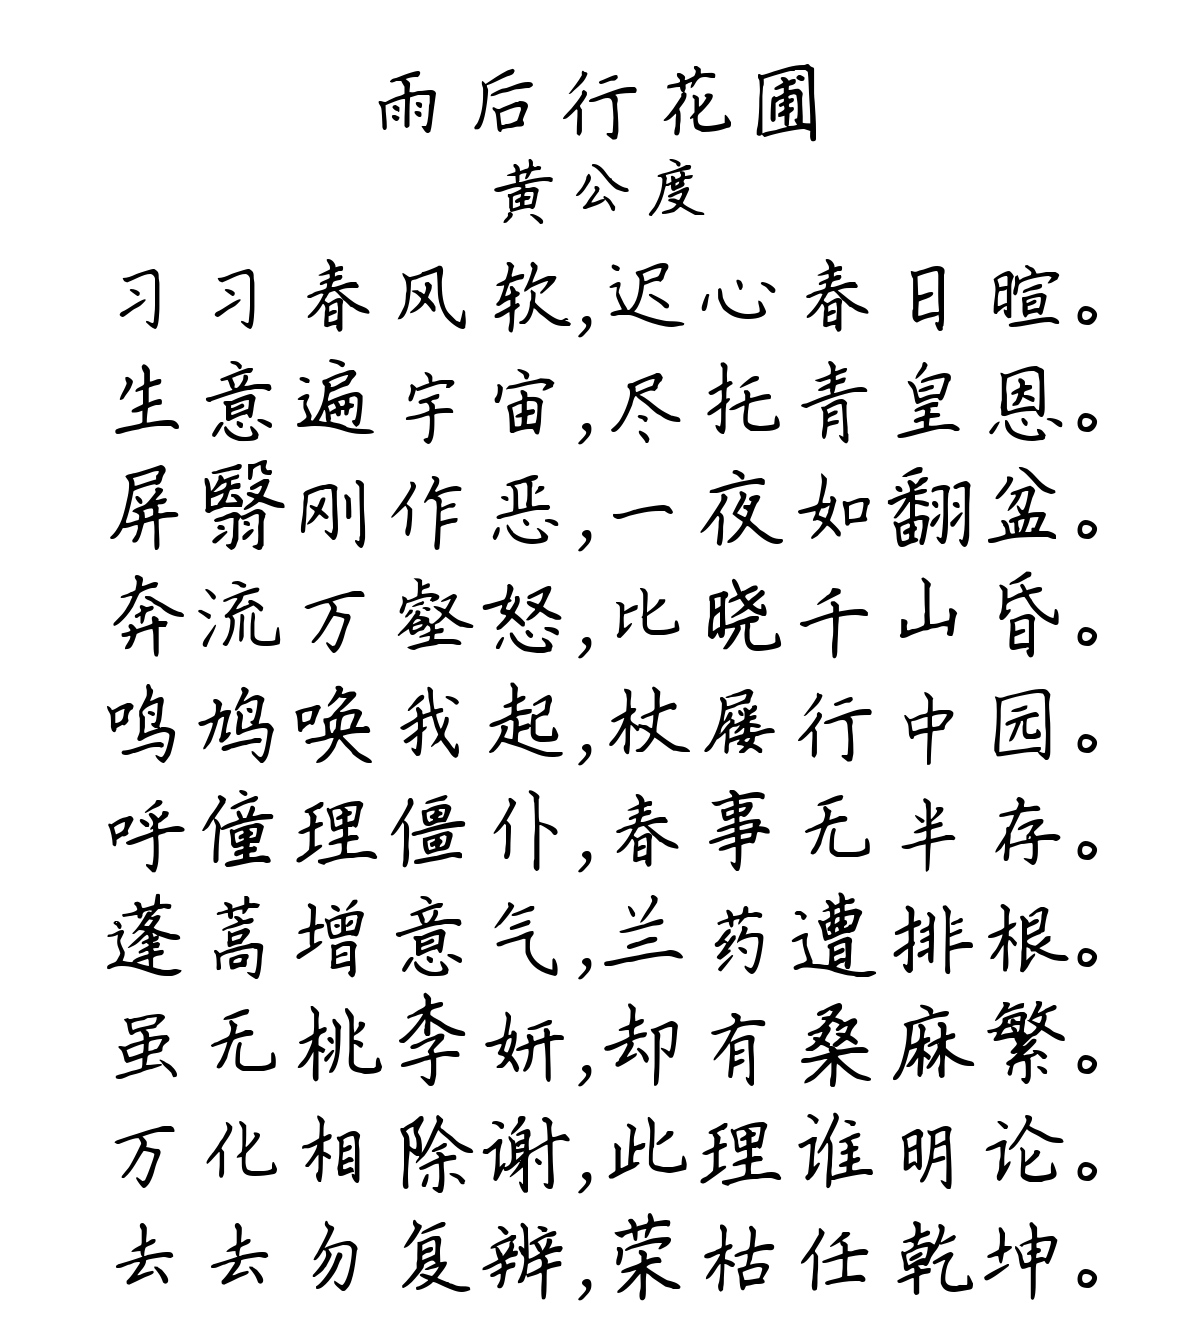 雨后行花圃
黄公度
习习春风软,迟心春日暄。
生意遍宇宙,尽托青皇恩。
屏翳刚作恶,一夜如翻盆。
奔流万壑怒,比晓千山昏。
鸣鸠唤我起,杖屦行中园。
呼僮理僵仆,春事无半存。
蓬蒿增意气,兰药遭排根。
虽无桃李妍,却有桑麻繁。
万化相除谢,此理谁明论。
去去勿复辨,荣枯任乾坤。